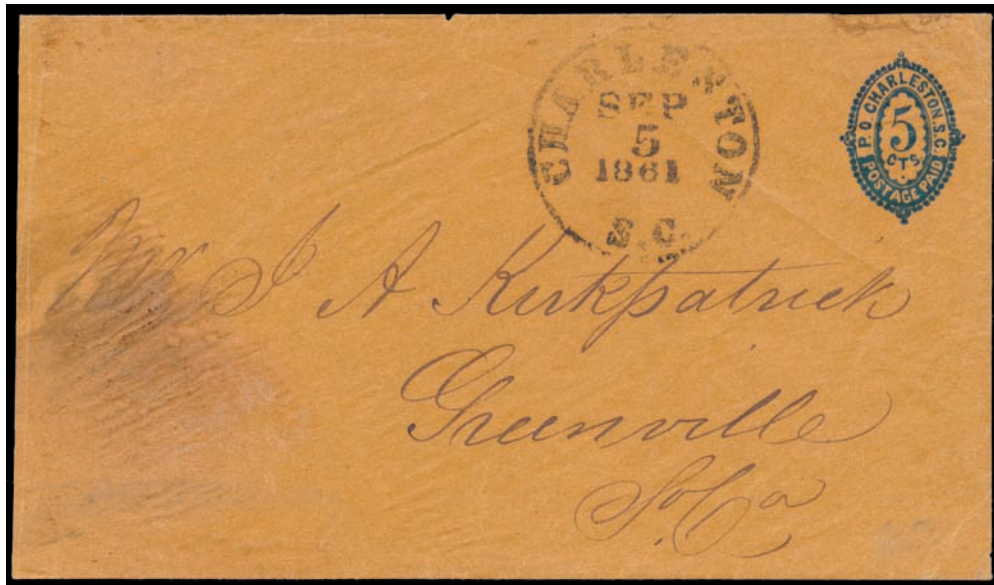 CHARLESTON
SEP
5
1861
S.C.
P.O. CHARLESTON. S.C.
5
CTS.
POSTAGE PAID
Mr J A Kirkpatrick
Greenville
So Ca